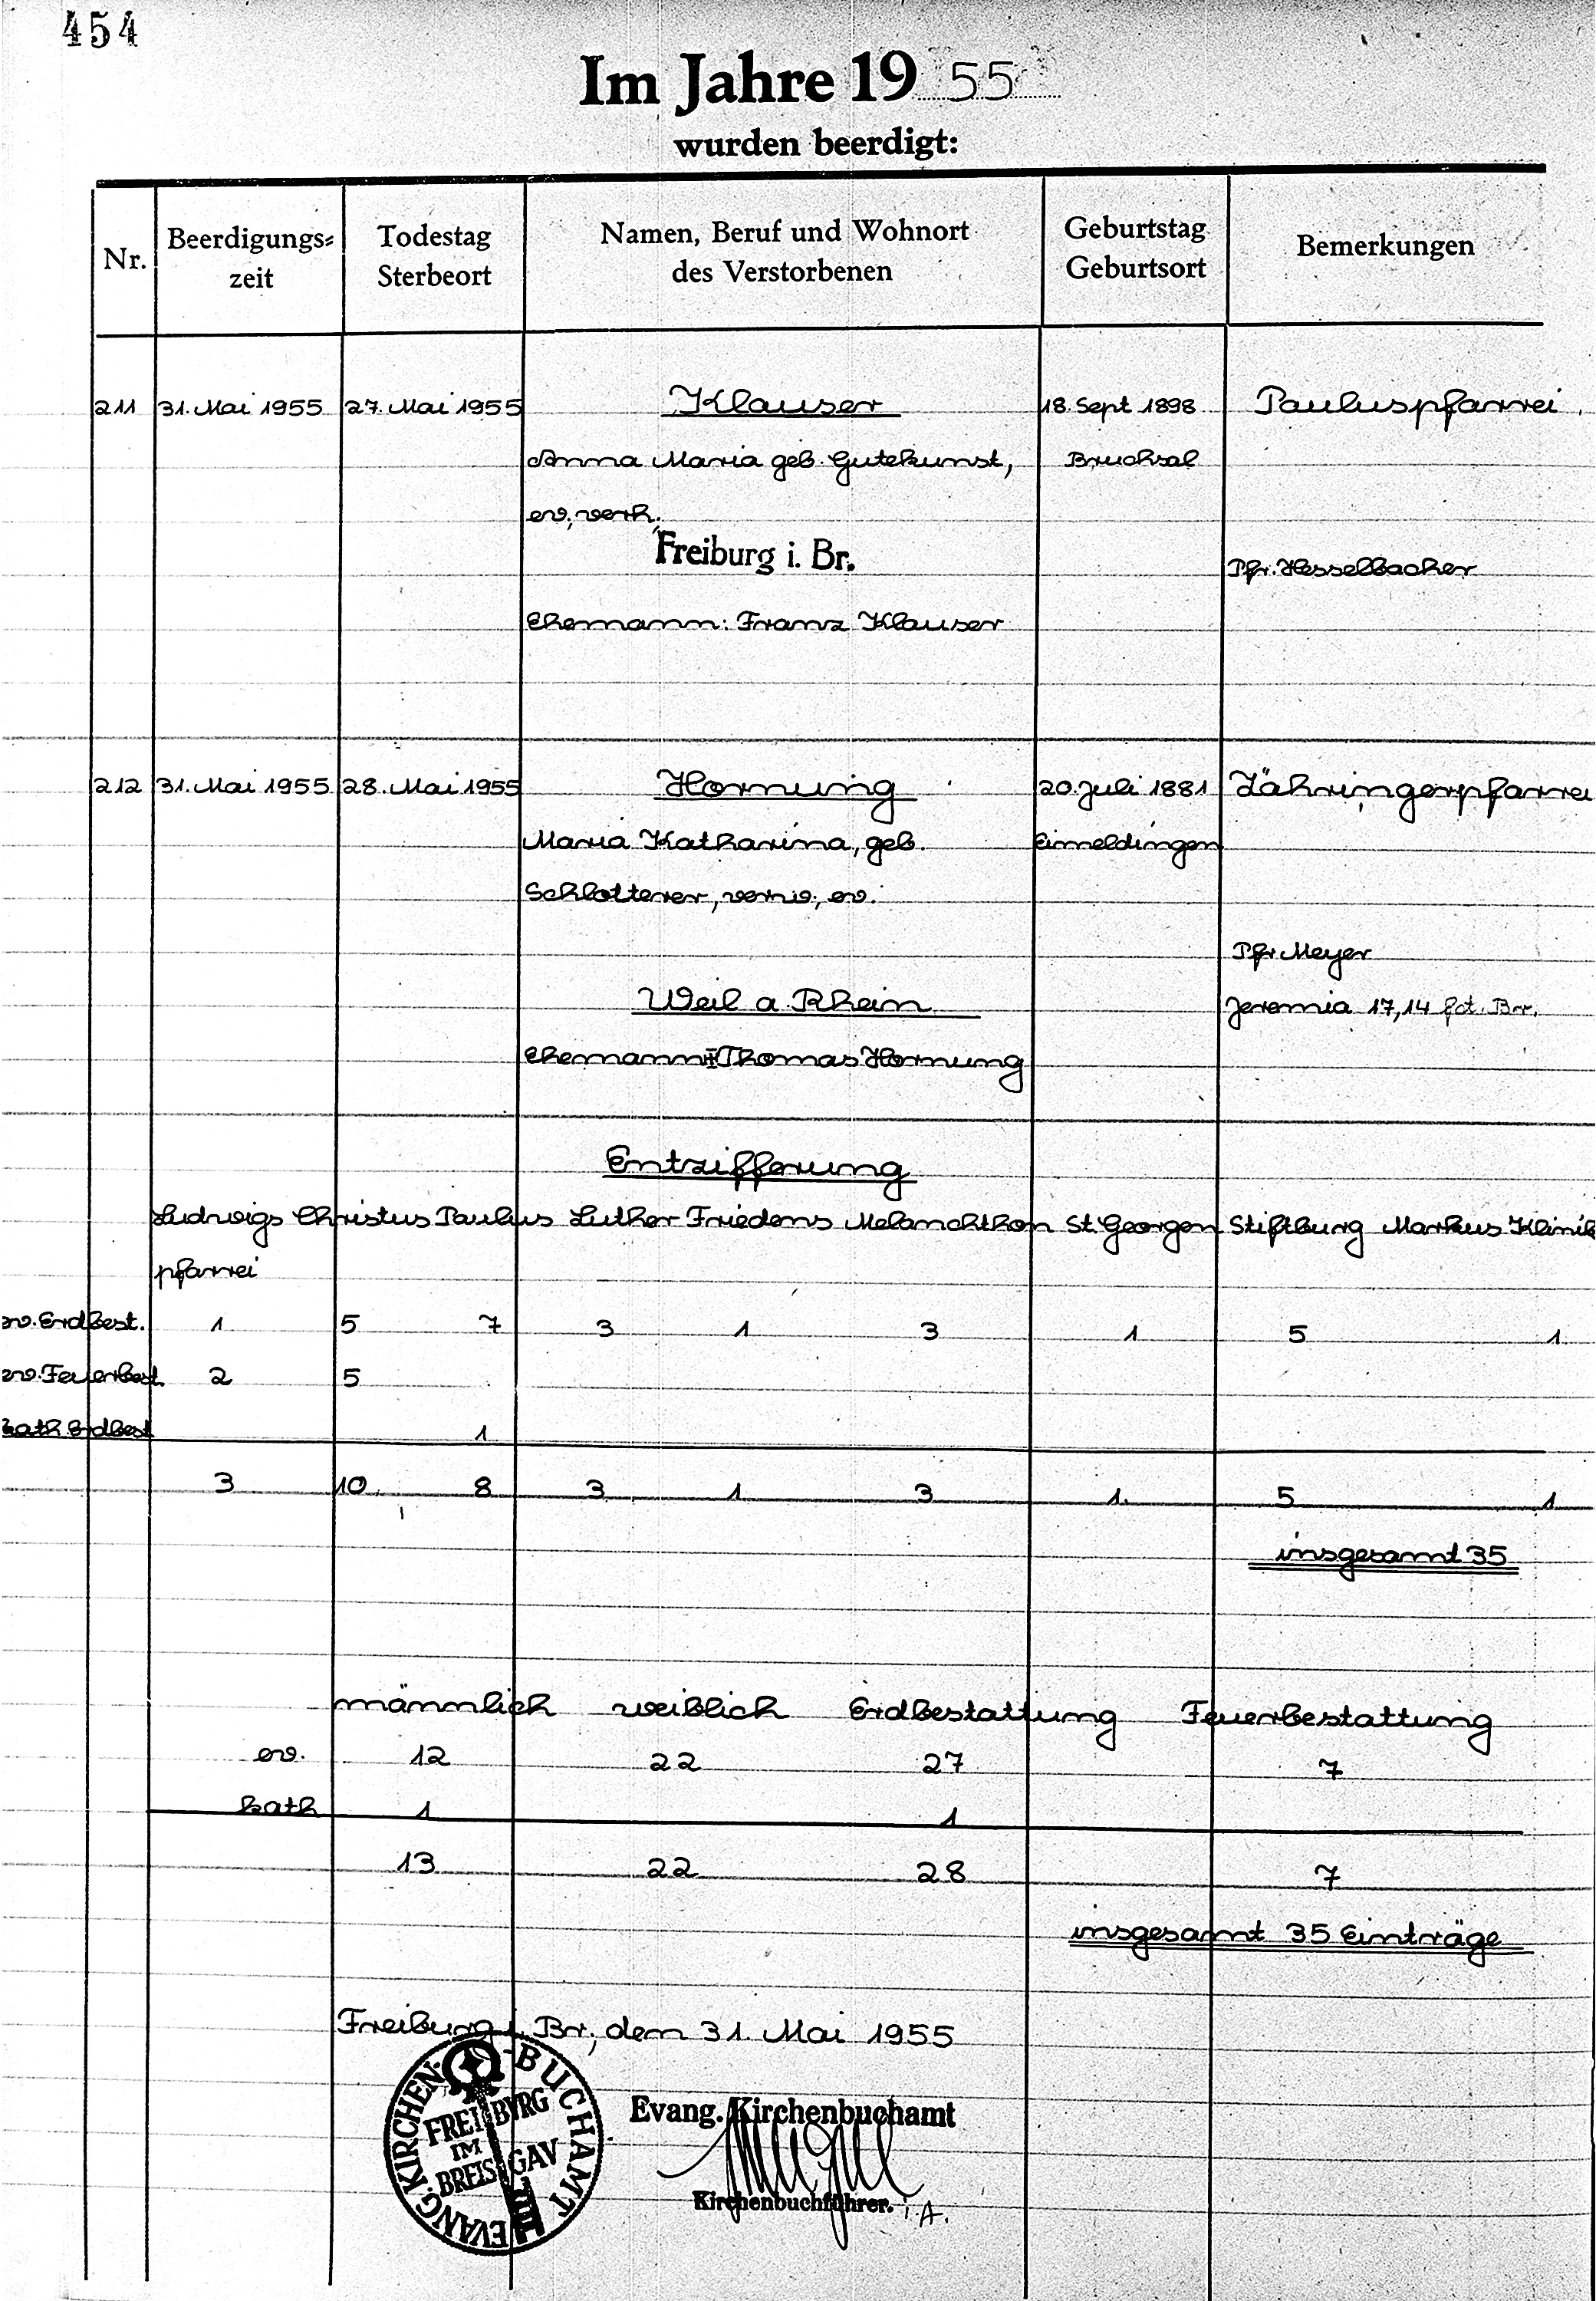 454
Im Jahre 1955
wurden beerdigt:
Nr. Beerdigungs= zeit Todestag Sterbeort Namen, Beruf und Wohnort des Verstorbenen Geburtstag Geburtsort Bemerkungen
211 31. Mai 1955 27. Mai 1955 Klauser 18. Sept 1898 Pauluspfarrei
Anna Maria geb. Gutekunst, Bruchsal
ev, verh.
Freiburg i. Br.
Pfr. Hesselbacher
Ehemann: Franz Klauser
212 31. Mai 1955 28. Mai 1955 Hornung 20. Juli 1881 Zähringerpfarrei
Maria Katharina, geb. Eimeldingen
Schlotterer, verw., ev.
Pfr Meyer
Weil a. Rhein Jeremia 17,14
Ehemann Thomas Hornung
Entzifferung
Ludwigs Christus Paulus Luther Friedens Melanchthon St. Georgen Stiftburg Markus Klinik
pfarrei
ev. Erdbest. 1 5 7 3 1 3 1 5 1
ev. Feuerbest. 2 5
kath Erdbest 1
3 10 8 3 1 3 1. 5 1
insgesamt 35
männlich weiblich Erdbestattung Feuerbestattung
ev. 12 22 27 7
kath 1 1
13 22 28 7
insgesamt 35 Einträge
Freiburg i. Br., den 31. Mai 1955
EVANG. KIRCHEN-BUCHAMT
FREIBVRG
IM
BREISGAV
Evang. Kirchenbuchamt
Kirchenbuchführer. i. A.